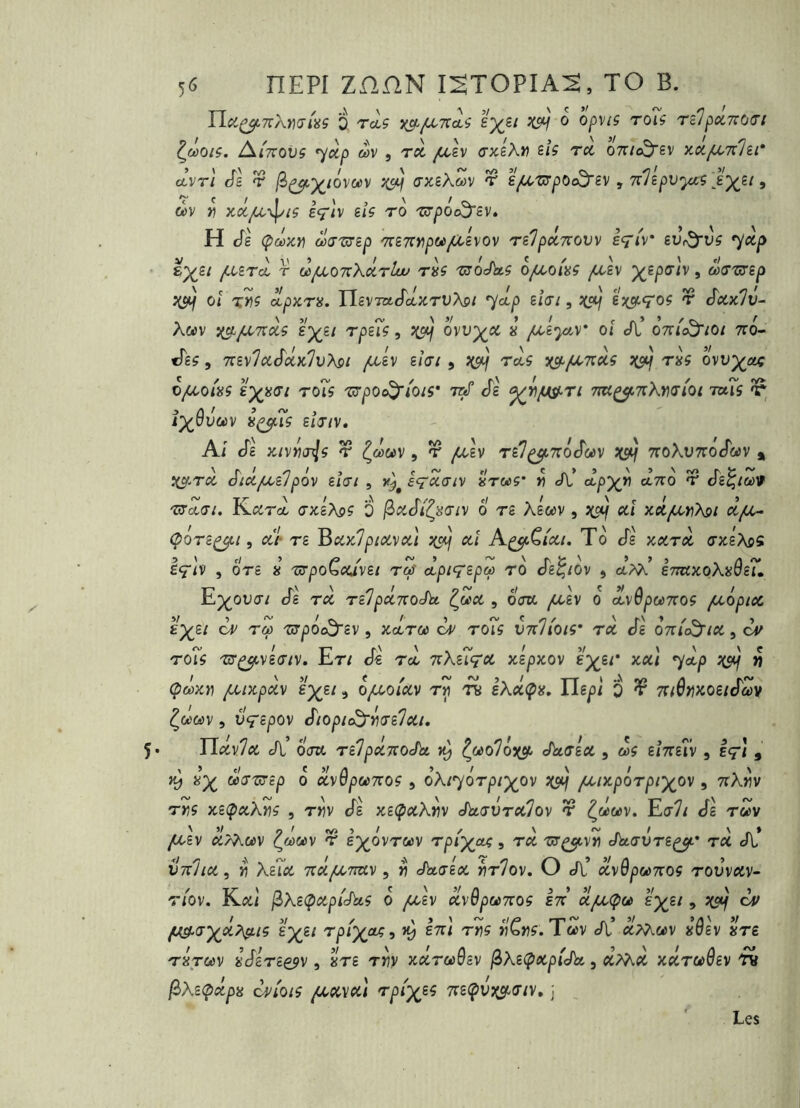 56 ΠΕΡΙ ΖΩΩΝ ΙΣΤΟΡΙΑΣ, ΤΟ Β.
Παραπλησίας δὲ τὰς κάμπας ἔχει καὶ ὁ ὄρνις τοῖς τετράποσι
ζώοις. Δίπους γὰρ ὢν, τὰ μὲν σκέλη εἰς τὰ ὄπισθεν κάμπτει·
ἀντὶ δὲ τῶν βραχιόνων καὶ σκελῶν τῶν ἔμπροσθεν, πτέρυγας ἔχει,
ὧν ἡ κάμψις ἐστὶν εἰς τὸ πρόσθεν.
Η δὲ φώκη ὥσπερ πεπηρωμένον τετράπουν ἐστίν· εὐθὺς γὰρ
ἔχει μετὰ τὴν ὠμοπλάτην τοὺς πόδας ὁμοίους μὲν χερσὶν, ὥσπερ
καὶ οἱ τῆς ἄρκτου. Πενταδάκτυλοι γάρ εἰσι, καὶ ἕκαστος τῶν δακτύ-
λων κάμπας ἔχει τρεῖς, καὶ ὄνυχα οὐ μέγαν· οἱ δ' ὀπίσθιοι πό-
δες, πενταδάκτυλοι μέν εἰσι, καὶ τὰς κάμπας καὶ τοὺς ὄνυχας
ὁμοίους ἔχουσι τοῖς προσθίοις· τῷ δὲ σχήματι παραπλήσιοι ταῖς τῶν
ἰχθύων οὐραῖς εἰσίν.
Αἱ δὲ κινήσεις τῶν ζώων, τῶν μὲν τετραπόδων καὶ πολυπόδων,
κατὰ διάμετρόν εἰσι, καὶ ἑστᾶσιν οὕτως· ἡ δ' ἀρχὴ ἀπὸ τῶν δεξιῶν
πᾶσι. Κατὰ σκέλος δὲ βαδίζουσιν ὅ τε λέων, καὶ αἱ κάμηλοι ἀμ-
φότεραι, αἵ τε Βακτριαναὶ καὶ αἱ Αραβίαι. Τὸ δὲ κατὰ σκέλος
ἐστὶν, ὅτε οὐ προβαίνει τῷ ἀριστερῷ τὸ δεξιὸν, ἀλλ' ἐπακολουθεῖ.
Εχουσι δὲ τὰ τετράποδα ζῶα, ὅσα μὲν ὁ ἄνθρωπος μόρια
ἔχει ἐν τῷ πρόσθεν, κάτω ἐν τοῖς ὑπτίοις· τὰ δὲ ὀπίσθια, ἐν
τοῖς πρανέσιν. Ετι δὲ τὰ πλεῖστα κέρκον ἔχει· καὶ γὰρ καὶ ἡ
φώκη μικρὰν ἔχει, ὁμοίαν τῇ τοῦ ἐλάφου. Περὶ δὲ τῶν πιθηκοειδῶν
ζώων, ὕστερον διορισθήσεται.
5. Πάντα δ' ὅσα τετράποδα καὶ ζωοτόκα δασέα, ὡς εἰπεῖν, ἐστὶ,
καὶ οὐχ ὥσπερ ὁ ἄνθρωπος, ὀλιγότριχον καὶ μικρότριχον, πλὴν
τῆς κεφαλῆς, τὴν δὲ κεφαλὴν δασύτατον τῶν ζώων. Εστι δὲ τῶν
μὲν ἄλλων ζώων τῶν ἐχόντων τρίχας, τὰ πρανῆ δασύτερα· τὰ δ'
ὕπτια, ἢ λεῖα πάμπαν, ἢ δασέα ἧττον. Ο δ' ἄνθρωπος τοὐναν-
τίον. Καὶ βλεφαρίδας ὁ μὲν ἄνθρωπος ἐπ' ἄμφω ἔχει, καὶ ἐν
μασχάλαις ἔχει τρίχας, καὶ ἐπὶ τῆς ἥβης. Τῶν δ' ἄλλων οὐθὲν οὔτε
τούτων οὐδέτερον, οὔτε τὴν κάτωθεν βλεφαρίδα, ἀλλὰ κάτωθεν τοῦ
βλεφάρου ἐνίοις μαναὶ τρίχες πεφύκασιν.
Les